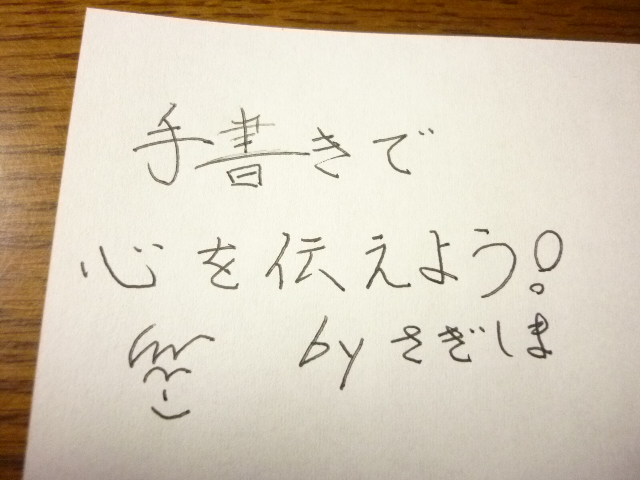 手書きで
心を伝えよう!
by さぎしま